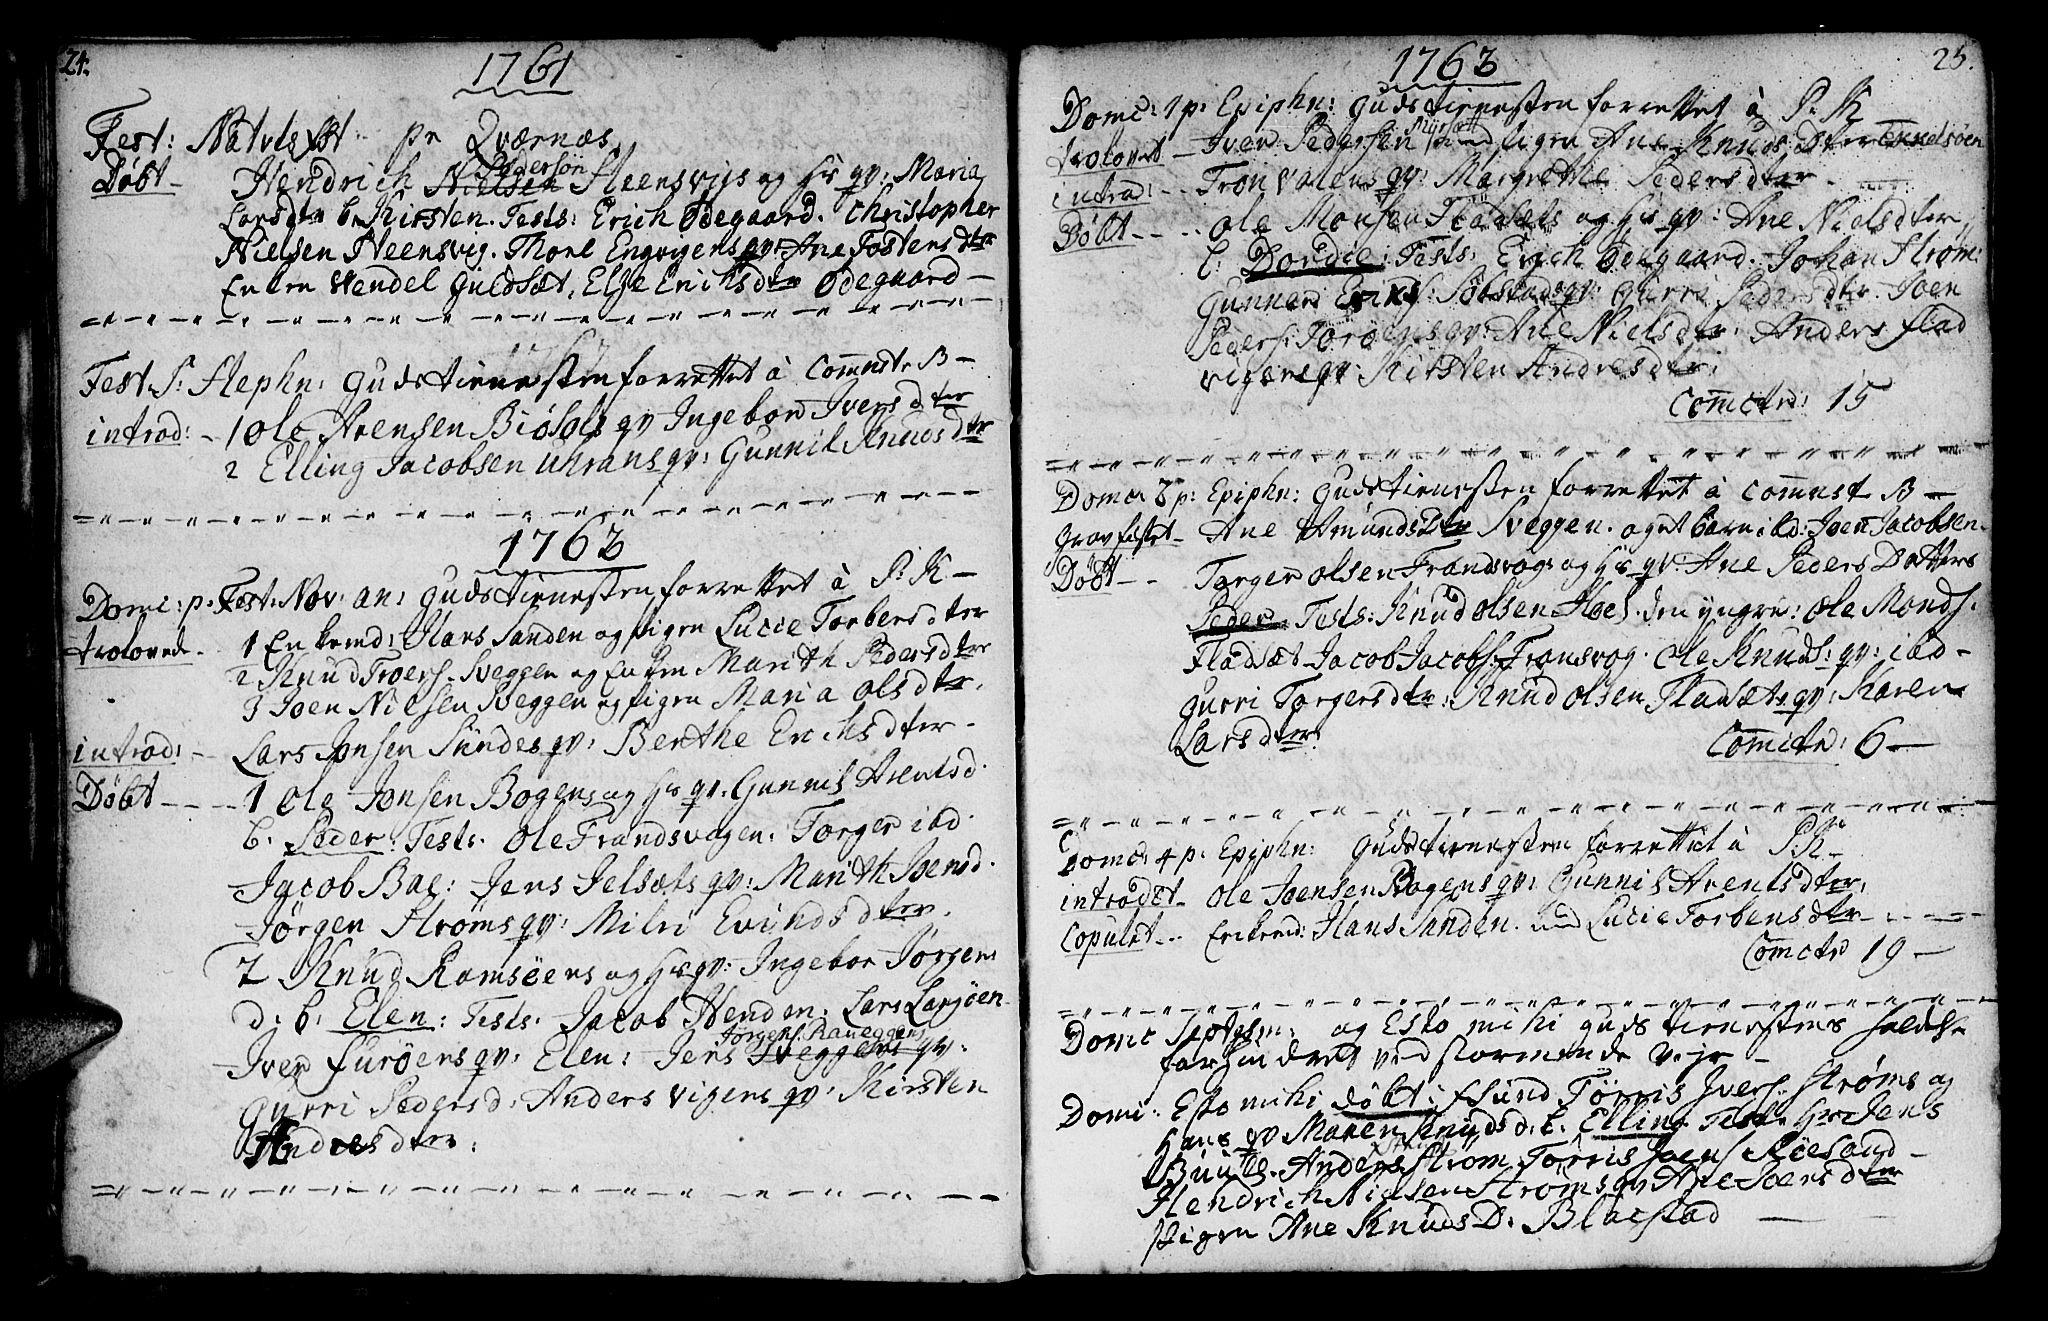 24.
1761
Fest: Nativit Xst pr Qværnæs
Døbt - Hendrich Nielsen Pedersøn Steensvigs og Hs qv: Maria
Larsdtr b. Kirsten. Tests: Erich Ødegaard. Christopher
Nielsen Steensvig. Thore Engvigens qv: Ane Tostensdtr
Enken Vendel Guldsæt, Else Erichsdtr Ødegaard -
Fest. S: Steph: Gudstienesten forrettet à Commst. B -
introd: - 1 Ole Arensen Biøsols qv Ingebor Iversdter
2 Elling Jacobsen Uhrans qv: Gunnil Knudsdtr
1763
Domc: p. Fest: Nov: an: Gudstienesten forrettet à P: K -
troloved - 1 Enkemd: Hans Sanden og pigen Lucie Torbersdter
2 Knud Troers. Sveggen og Enken Marith Pedersdtr
3 Joen Nielsen Sveggen og pigen Maria Olsdtr.
introd: - Lars Jonsen Sundes qv: Berthe Erichsdter -
Døbt - - - 1 Ole Jonsen Bogens og Hs qv: Gunnil Arentsd.
b. Peder. Tests. Ole Frandsvogen: Torger ibd.
Jacob Bae: Jens Jelsæts qv: Marith Iversd.
Jørgen Strøms qv: Milri Evindsdter.
2 Knud Ramsøens og Hs qv: Ingebor Jørgens
d: b: Elen: Tests. Jacob Henden: Lars Larsøen
Iver Furøens qv: Elen: Jens Sveggens Jørgens. Raueggens qv:
Gurri Pedersd: Anders Vigens qv: Kirsten
Andresdter:
25.
1763
Domc: 1 p: Epiphn: Gudstienesten forrettet à P: K
trolovet - Iver Pedersen Myrsæt med pigen Ane Knudsdter
introd: - - Tron Valens qv: Margrethe Pedersdter.
Døbt - - - Ole Monsen Fladsæts og Hs qv: Ane Nielsdter
b: Dordie: Tests: Erich Ødegaard. Johan Strøm:
Gunnar Erichs: Sølstads qv: Gurri Pedersdtr. Joen
Peders: Forøens qv: Ane Nielsdtr: Anders Flad
vigens qv: Kirsten Andresdtr:
Comctr: 15
Domc 3 p: Epiphn: Gudstienesten forrettet à Commst B -
Gravfæstet - Ane Amundsdtr Sveggen. og et barn ibd: Joen Jacobsen.
Døbt - - Torger Olsen Frandsvogs og Hs qv: Ane Peders Datters
Peder. Tests: Knud Olsen Hoel den yngre: Ole Monds.
Fladsæt Jacob Jacobs. Fransvog. Ole Knuds: qv: ibd -
Gurri Torgersdtr: Knud Olsen Fladsæts qv: Karen
Larsdter:
Comctr: 6 -
Domc: 4 p: Epiphn: Gudstienesten forrettet à P: K -
introdct - Ole Joensen Bogens qv: Gunnil Arentsdter.
Copulet - - Enkemd: Hans Sanden. med Lucie Torbensdtr - : - - -
Comctr 19 -
Domc og Esto mihi gudstienestens
forhindret ved stormende Vejr -
Domi: Esto mihi døbt: Tørris Ivers. Strøms og
Hans qv Maren Knudsd. b. Elling. Test. Hr Jens
Anders Strøm. Tørris Joens Røesand -
Hendrich Nielsen Strøms qv Ane Joensdter
pigen Ane Knuds D. Blacstad -